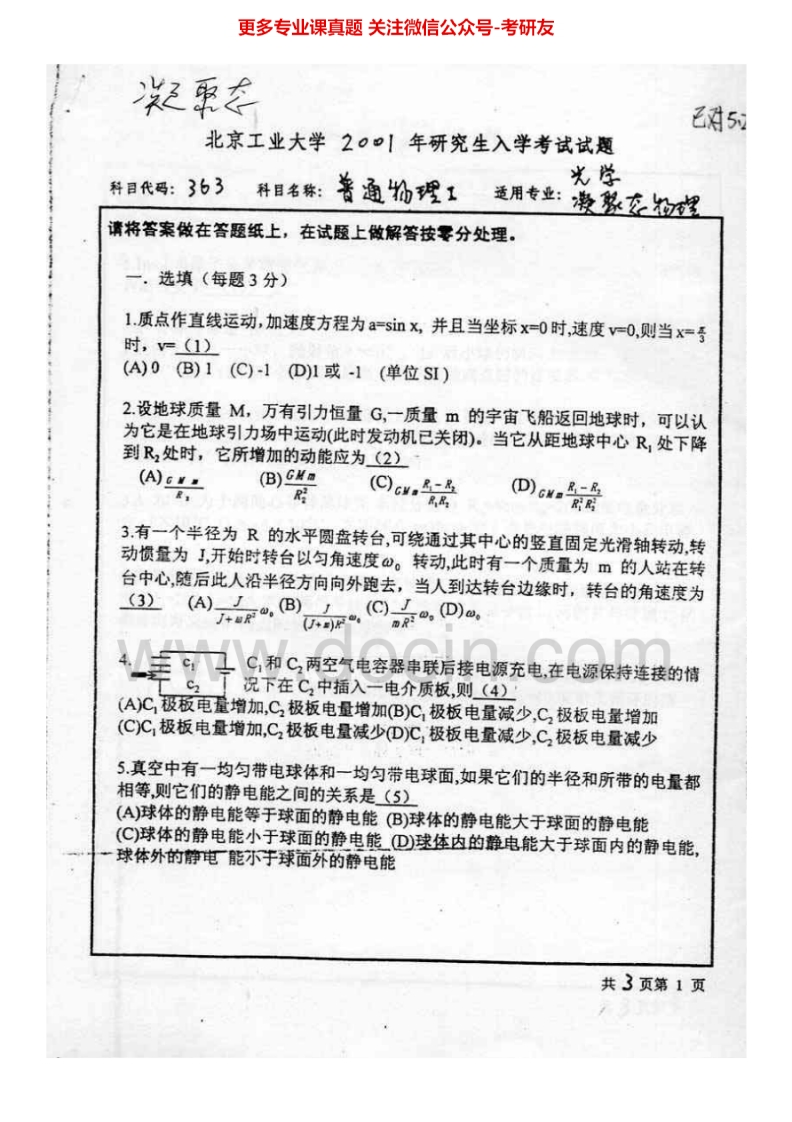 更多专业课真题 关注微信公众号-考研友
凝聚态
北京工业大学 2001 年研究生入学考试试题
科目代码: 363 科目名称: 普通物理I 适用专业: 光学
凝聚态物理
请将答案做在答题纸上，在试题上做解答按零分处理。
一．选填（每题 3 分）
1.质点作直线运动,加速度方程为 a=sin x, 并且当坐标 x=0 时,速度 v=0,则当 x=π/3
时，v=（1）
(A) 0 (B) 1 (C) -1 (D)1 或 -1 (单位 SI )
2.设地球质量 M，万有引力恒量 G,一质量 m 的宇宙飞船返回地球时，可以认
为它是在地球引力场中运动(此时发动机已关闭)。当它从距地球中心 R₁ 处下降
到 R₂处时，它所增加的动能应为（2）
(A) GMm/R₂ (B) GMm/R₂² (C) GMm (R₁-R₂)/(R₁R₂) (D) GMm (R₁-R₂)/(R₁²R₂²)
3.有一个半径为 R 的水平圆盘转台,可绕通过其中心的竖直固定光滑轴转动,转
动惯量为 J,开始时转台以匀角速度ω₀ 转动,此时有一个质量为 m 的人站在转
台中心,随后此人沿半径方向向外跑去，当人到达转台边缘时，转台的角速度为
（3） (A) J/(J+mR²) ω₀ (B) J/((J+m)R²) ω₀ (C) J/(mR²) ω₀ (D) ω₀
4. C₁ C₂ C₁和 C₂两空气电容器串联后接电源充电.在电源保持连接的情
况下在 C₂中插入一电介质板,则（4）
(A)C₁极板电量增加,C₂极板电量增加(B)C₁极板电量减少,C₂极板电量增加
(C)C₁极板电量增加,C₂极板电量减少(D)C₁极板电量减少,C₂极板电量减少
5.真空中有一均匀带电球体和一均匀带电球面,如果它们的半径和所带的电量都
相等,则它们的静电能之间的关系是（5）
(A)球体的静电能等于球面的静电能 (B)球体的静电能大于球面的静电能
(C)球体的静电能小于球面的静电能 (D)球体内的静电能大于球面内的静电能,
球体外的静电 能小于球面外的静电能
www.docin.com
共 3 页第 1 页